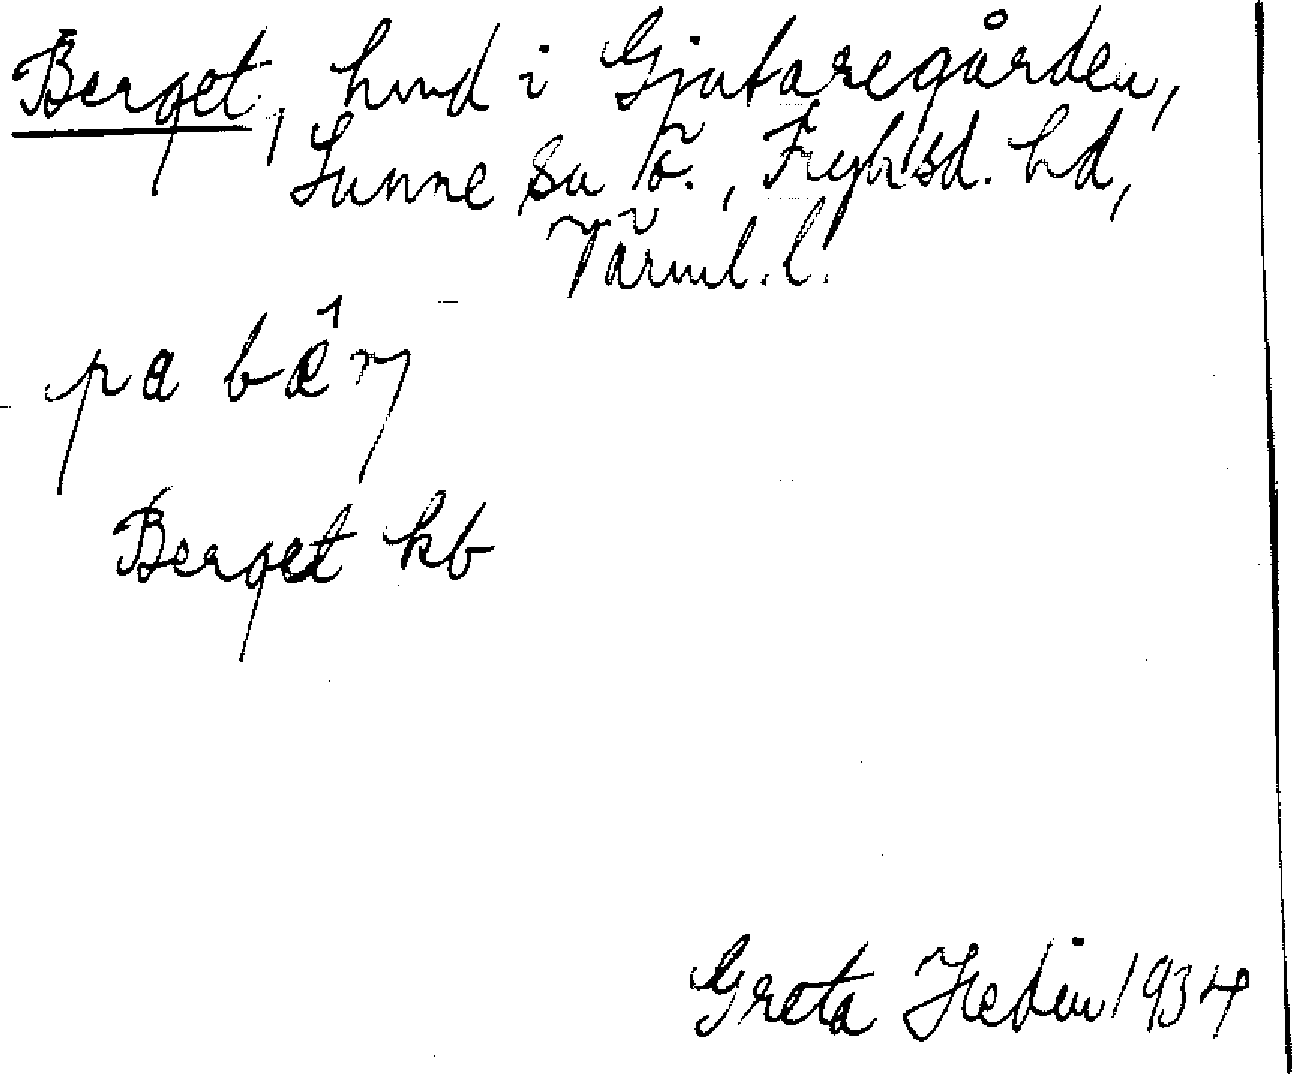 Berget, hmd i Gjutaregården,
Sunne sn Ö., Fryksd. hd,
Värml. l.
pa bæ̂rj
Berget kb
Greta Hedin 1934